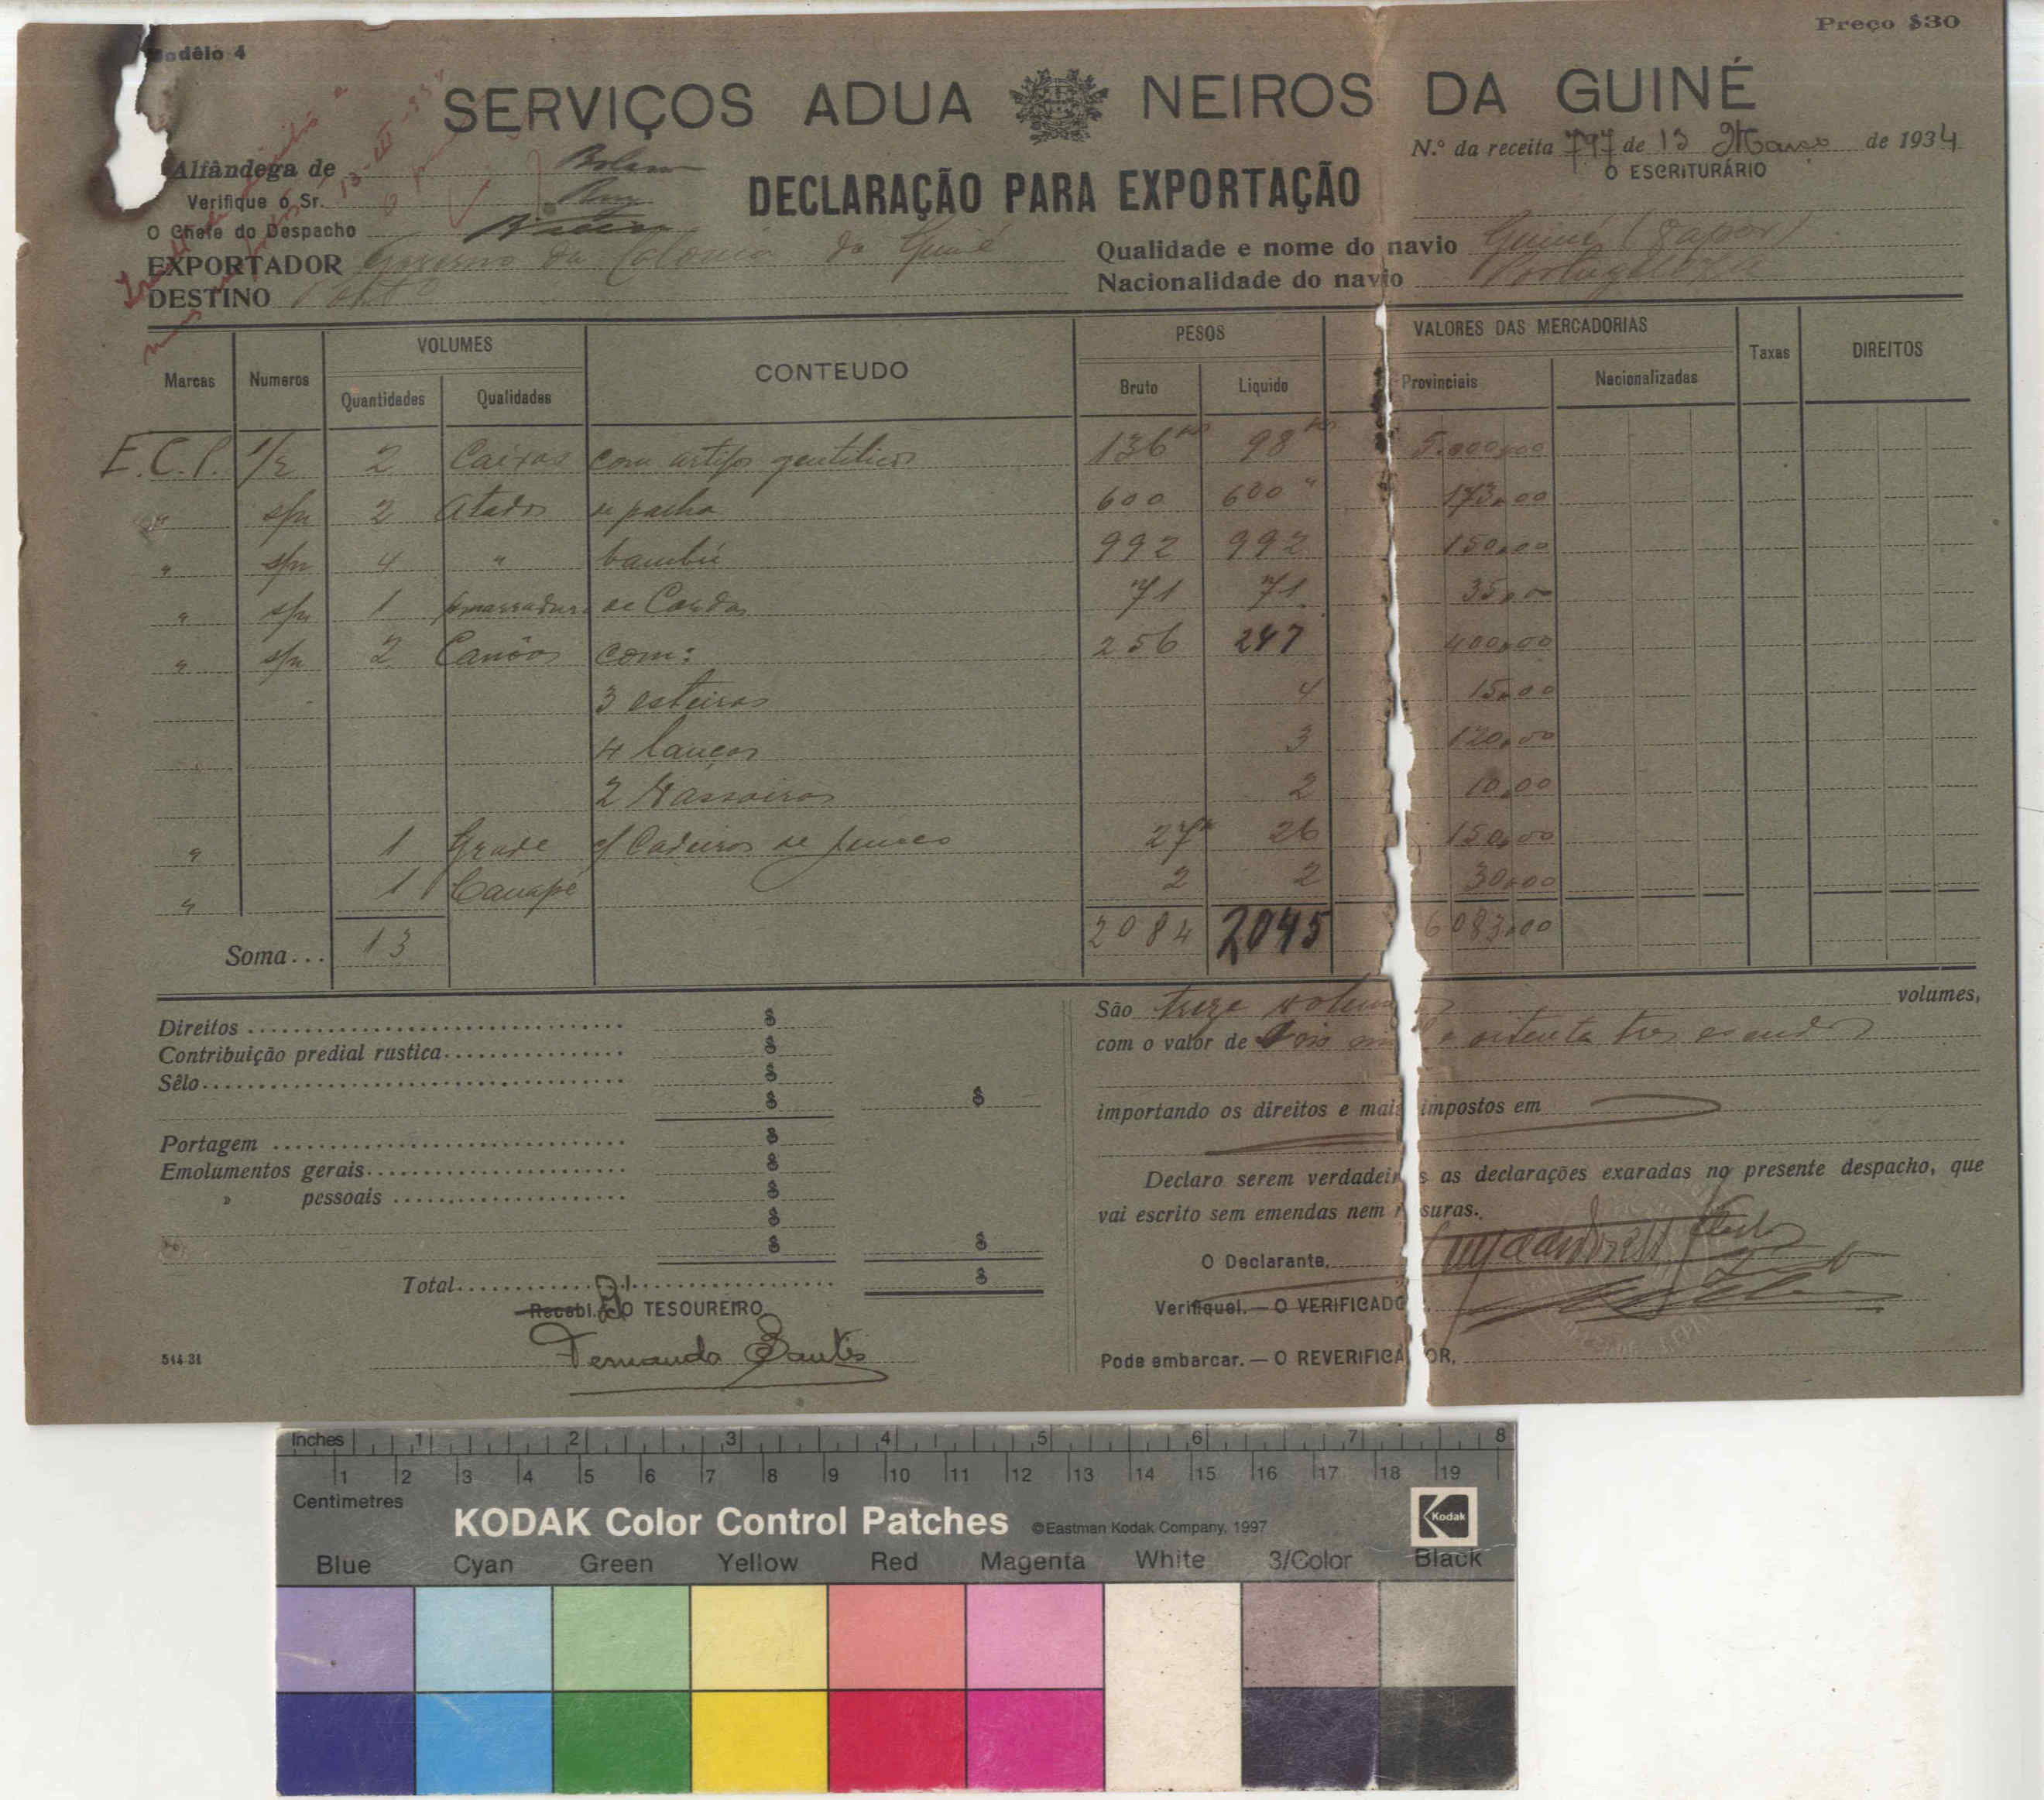 Modêlo 4
Preço $30
SERVIÇOS ADUANEIROS DA GUINÉ
N.º da receita 797 de 13 Março de 1934
O ESCRITURÁRIO
Alfândega de Bolama
Verifique o Sr.
O Chefe do Despacho
DECLARAÇÃO PARA EXPORTAÇÃO
EXPORTADOR Governo da Colonia da Guiné
DESTINO Porto
Qualidade e nome do navio Guiné (Vapor)
Nacionalidade do navio Portugueza
Marcas Numeros VOLUMES Quantidades Qualidades CONTEUDO PESOS Bruto Liquido VALORES DAS MERCADORIAS Provinciais Nacionalizadas Taxas DIREITOS
E.C.P. 1/2 2 Caixas com artifos gentilicos 136 ks 98 ks 5.000,00
" s/n 2 atados de palha 600 600 " 173,00
" s/n 4 " bambú 992 992 150,00
" s/n 1 amarradura de Cordas 71 71 35,00
" s/n 2 Canôas com: 256 247 400,00
3 esteiras 4 15,00
4 lanças 3 120,00
2 Vassoiras 2 10,00
" 1 Grade c/ Cadeiras de junco 27 26 150,00
" 1 Canapé 2 2 30,00
Soma... 13 2084 2045 6083,00
Direitos $
Contribuição predial rustica $
Sêlo $
$ $
Portagem $
Emolumentos gerais $
» pessoais $
$
$ $
Total $
Recebi. O TESOUREIRO
Fernando Santos
514 31
São treze volumes volumes,
com o valor de Dois mil e oitenta tres escudos
importando os direitos e mais impostos em
Declaro serem verdadeiras as declarações exaradas no presente despacho, que
vai escrito sem emendas nem rasuras.
O Declarante,
Verifiquei.—O VERIFICADOR,
Pode embarcar.—O REVERIFICADOR,
Inches 1 2 3 4 5 6 7 8
1 2 3 4 5 6 7 8 9 10 11 12 13 14 15 16 17 18 19
Centimetres
KODAK Color Control Patches ©Eastman Kodak Company, 1997 Kodak
Blue Cyan Green Yellow Red Magenta White 3/Color Black